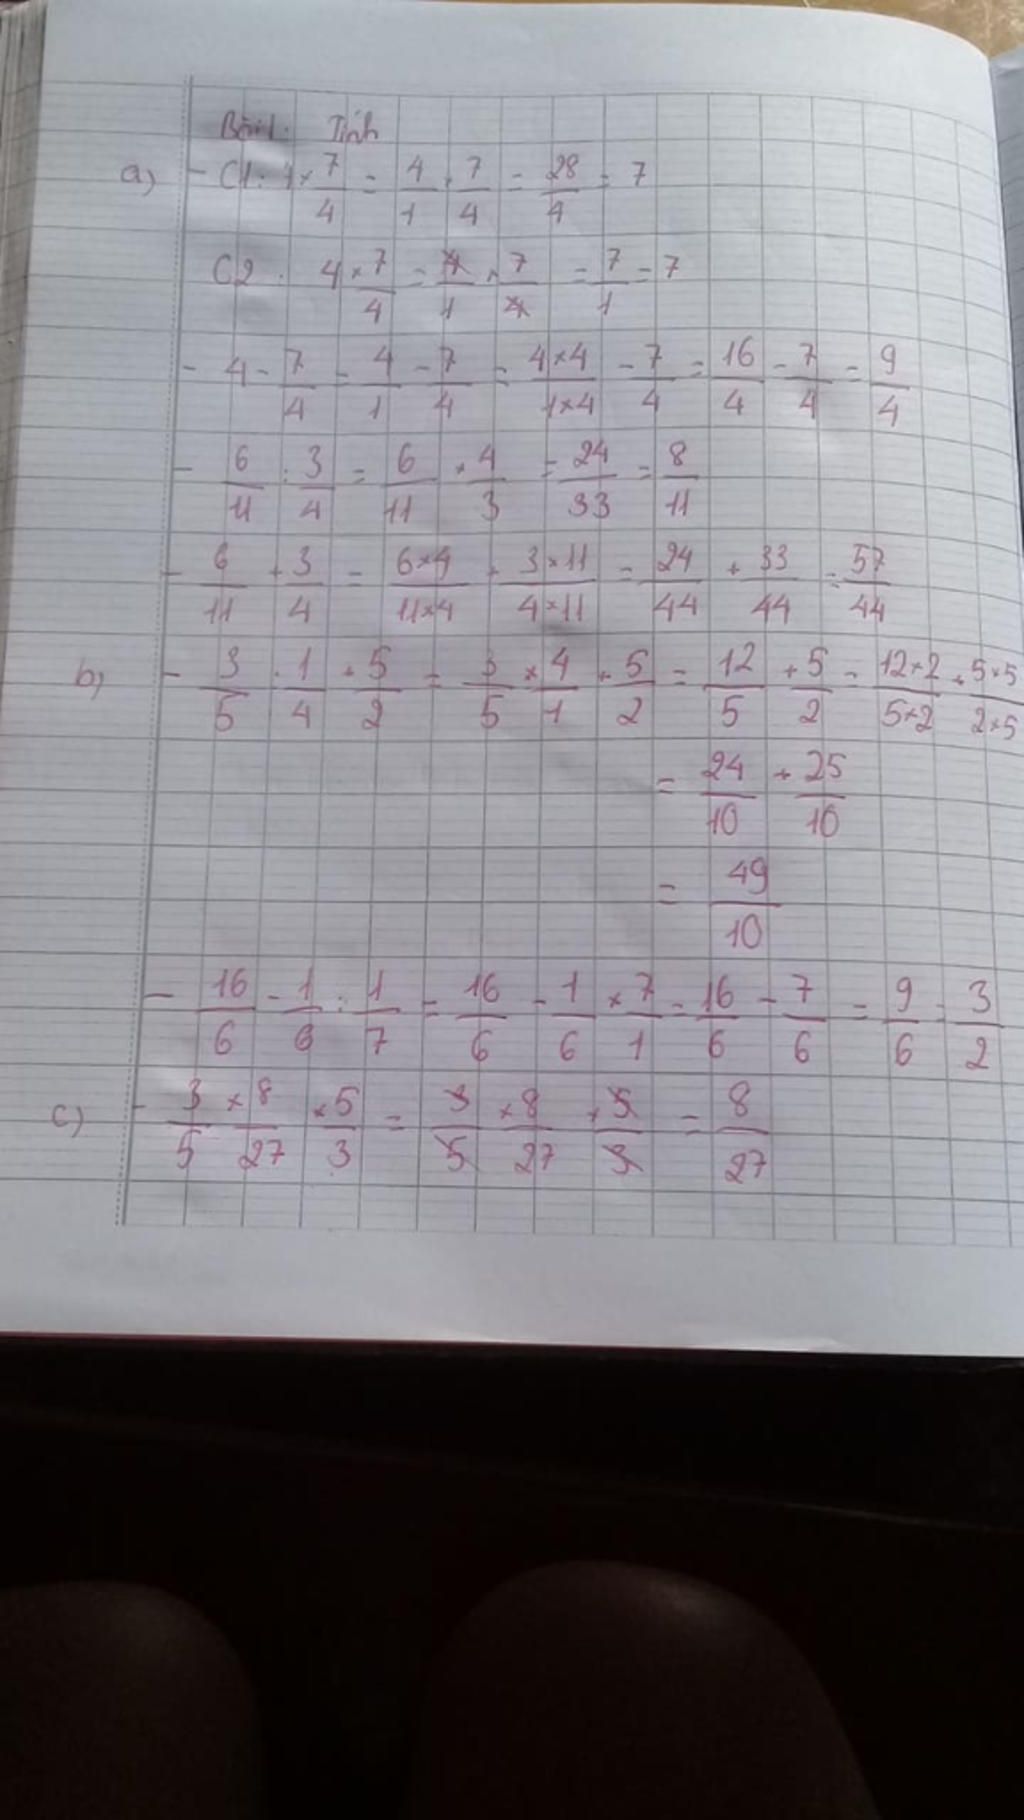 Bài 1. Tính
a) - C1: 4 × 7/4 = 4/1 × 7/4 = 28/4 = 7
C2: 4 × 7/4 = 4/1 × 7/4 = 7/1 = 7
- 4 - 7/4 = 4/1 - 7/4 = 4×4/1×4 - 7/4 = 16/4 - 7/4 = 9/4
- 6/11 : 3/4 = 6/11 × 4/3 = 24/33 = 8/11
- 6/11 + 3/4 = 6×4/11×4 + 3×11/4×11 = 24/44 + 33/44 = 57/44
b) - 3/5 : 1/4 + 5/2 = 3/5 × 4/1 + 5/2 = 12/5 + 5/2 = 12×2/5×2 + 5×5/2×5
= 24/10 + 25/10
= 49/10
- 16/6 - 1/6 : 1/7 = 16/6 - 1/6 × 7/1 = 16/6 - 7/6 = 9/6 = 3/2
c) - 3/5 × 8/27 × 5/3 = 3/5 × 8/27 × 5/3 = 8/27